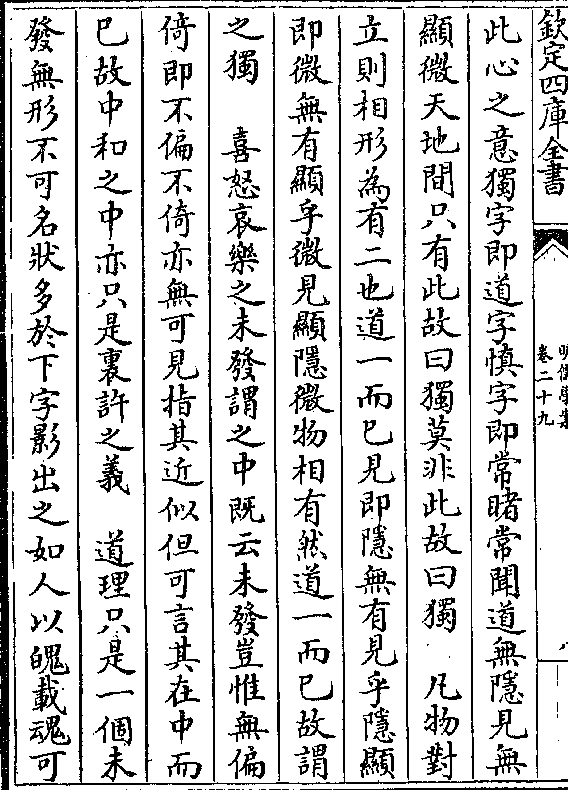 欽定四庫全書
明儒學案
卷二十九
八
此心之意獨字即道字慎字即常睹常聞道無隱見無
顯微天地間只有此故曰獨莫非此故曰獨　凡物對
立則相形為有二也道一而已見即隱無有見乎隱顯
即微無有顯乎微見顯隱微物相有然道一而已故謂
之獨　喜怒哀樂之未發謂之中既云未發豈惟無偏
倚即不偏不倚亦無可見指其近似但可言其在中而
已故中和之中亦只是裏許之義　道理只是一個未
發無形不可名狀多於下字影出之如人以魄載魂可